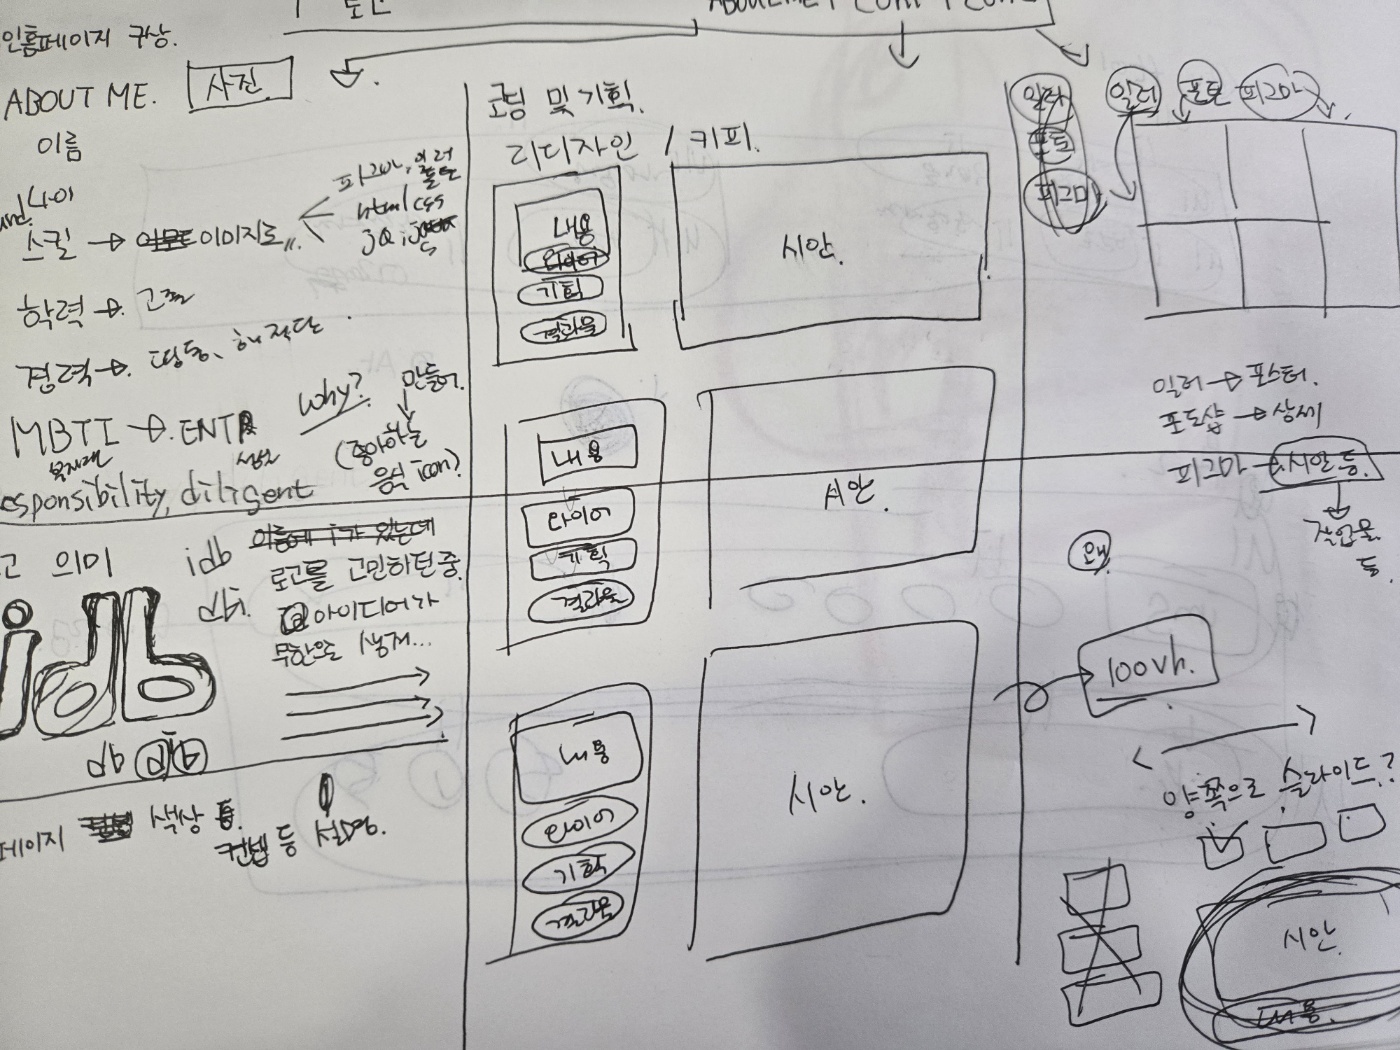 인홈페이지 구상.
ABOUT ME. 사진
이름
나이
스킬 → 이미지로
피그마, 일러
html css
학력 → 고졸
경력 →
MBTI → ENT
why?
만들기.
(좋아하는
음식 icon?)
esponsibility, diligent
고 의미
idb
로고를 고민하던 중.
아이디어가
생겨...
idb
db
페이지 색상 등.
컨셉 등 설명.
코딩 및 기획.
리디자인 / 카피.
내용
기획
결과물
시안.
내용
와이어
기획
결과물
시안.
내용
와이어
기획
결과물
시안.
일러
포토
피그마
일러 포토 피그마
일러 → 포스터.
포토샵 → 상세
피그마 → 시안 등.
등.
왜.
100vh.
양쪽으로 슬라이드?
시안.
내용.